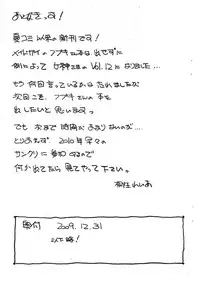 あとがきっス！
夏コミ以来の新刊です！
メイルガイのフブキさん本は出せずに
例によって女神さまのVol.12になりました…
もう何回言っているか忘れましたが
次回こそ、フブキさんの本を
出したいと思いますっ
でも、次まで時間があまりないのが…
とりあえず、2010年冬々の
サンクリに参加するので
何か出てたら見てやって下さい。
桐生れいあ
奥付　2009.12.31
以下略！